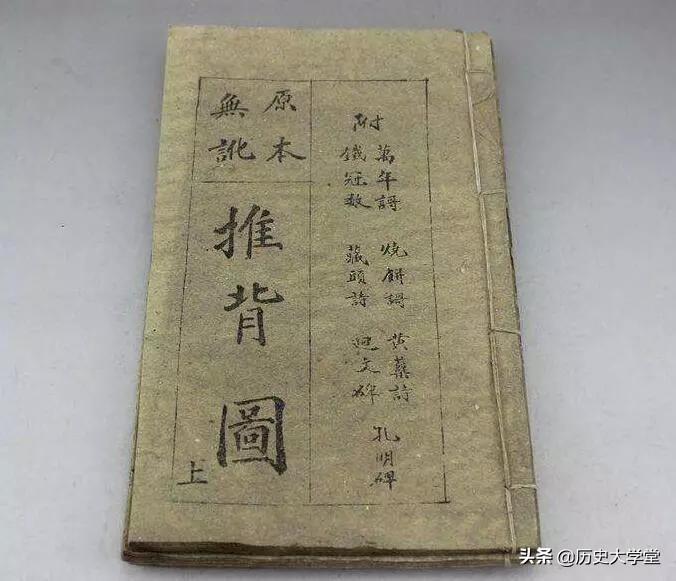 附
萬年謌
鐵冠数
燒餅謌
藏頭詩
黃蘗詩
迴文碑
孔明碑
原本
無訛
推背圖
上
头条 @历史大学堂